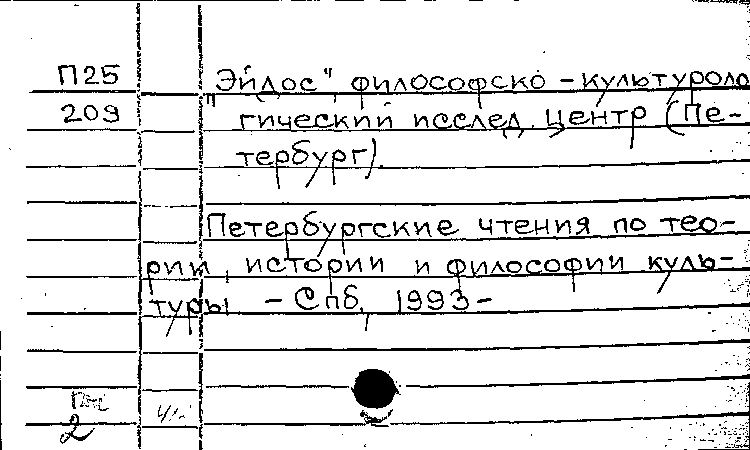 П25
209
"Эйдос", философско-культуроло
гический исслед. центр (Пе-
тербург).
Петербургские чтения по тео-
рии, истории и философии куль-
туры - Спб, 1993-
2